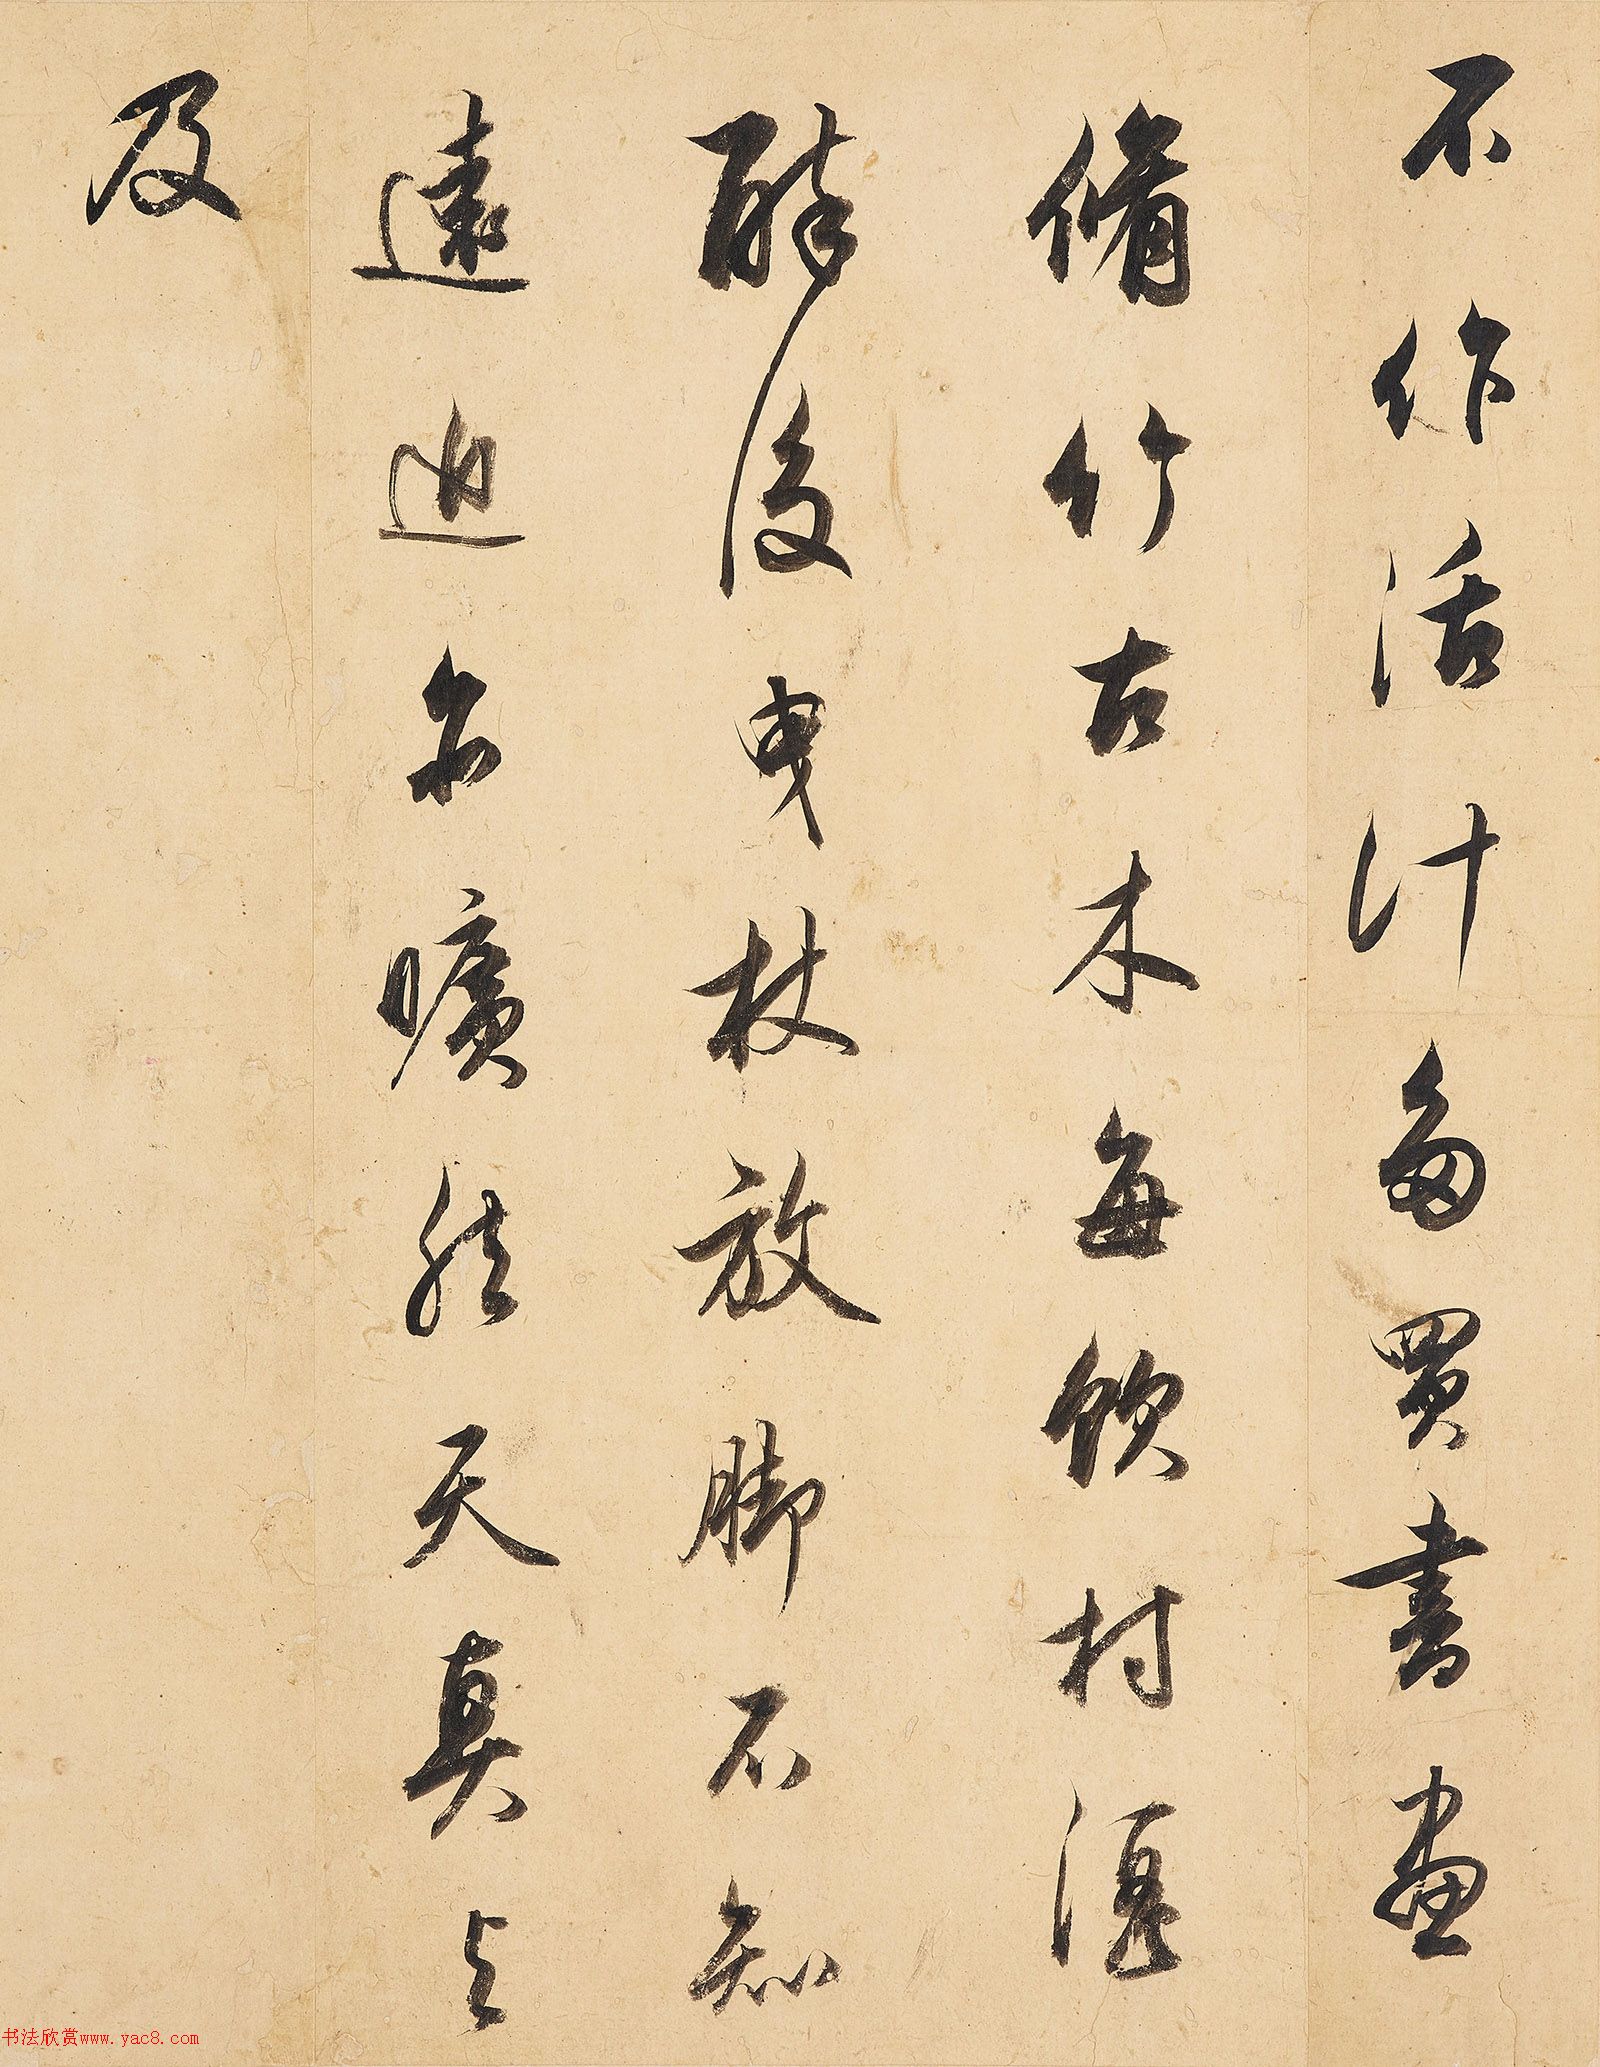 不作活计多買書畫
脩竹古木每飲村酒
醉後曳杖放脚不知
遠近亦曠然天真与
及
书法欣赏www.yac8.com